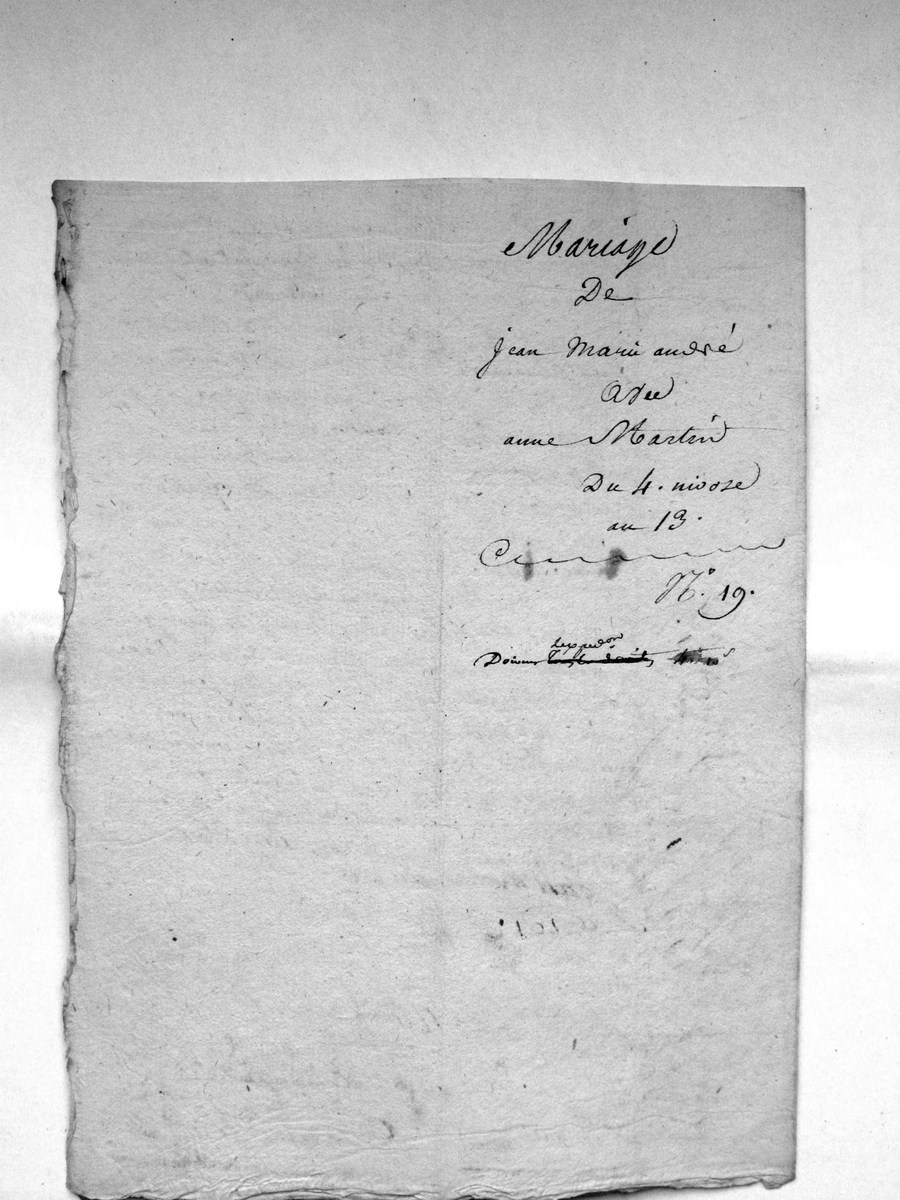 Mariage
De
jean Marie andré
avec
anne Martin
Du 4. nivose
an 13.
N.° 19.